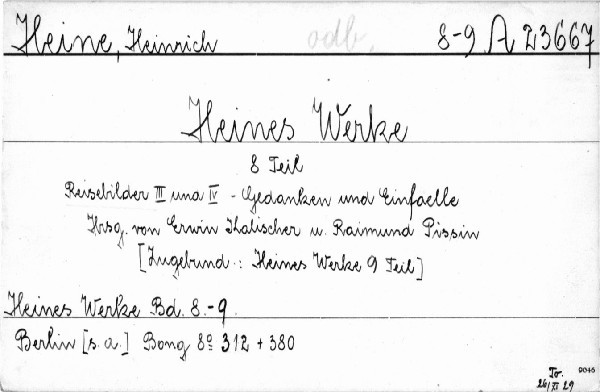 Heine, Heinrich odb. 8-9 A 23667
Heines Werke
8 Teil
Reisebilder III una IV - Gedanken und Einfaelle
Hrsg. von Erwin Kalischer u. Raimund Pissin
[Zugebund.: Heines Werke 9 Teil]
Heines Werke Bd. 8.-9.
Berlin [s.a.] Bong 8º 312 + 380
To. 9046
26/XI 29